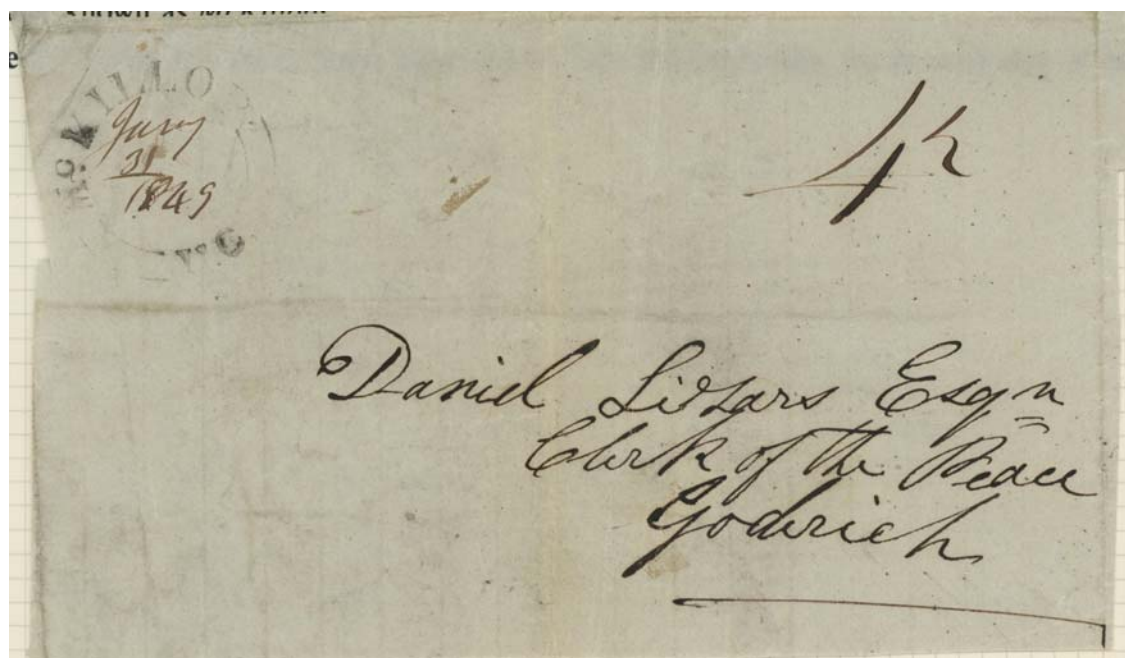 McKILLO
Jany
31
1849
4½
Daniel Lizars Esqr
Clerk of the Peace
Goderich